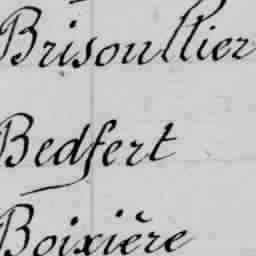 Brisoullier
Bedfert
Boixière